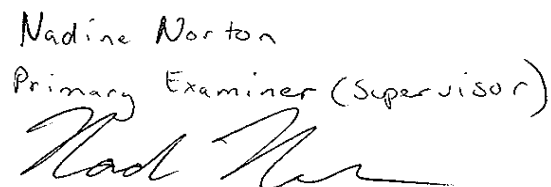 Nadine Norton
Primary Examiner (Supervisor)